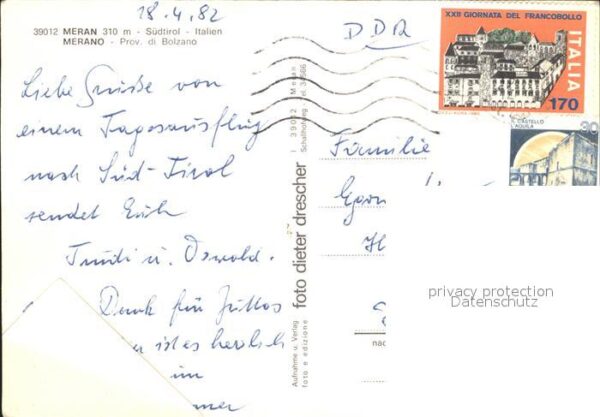 18.4.82
39012 MERAN 310 m - Südtirol - Italien
MERANO - Prov. di Bolzano
Liebe Grüße von
einem Tagesausflug
nach Süd-Tirol
sendet Euch
Trudi u. Oswald.
Dank für Juttas
ist es herzlich
im
foto dieter drescher
I 39012 Meran
Aufnahme u. Verlag
foto e edizione
DDR
XXII GIORNATA DEL FRANCOBOLLO
ITALIA
170
30
IL CASTELLO
L'AQUILA
Familie
Egon
privacy protection
Datenschutz